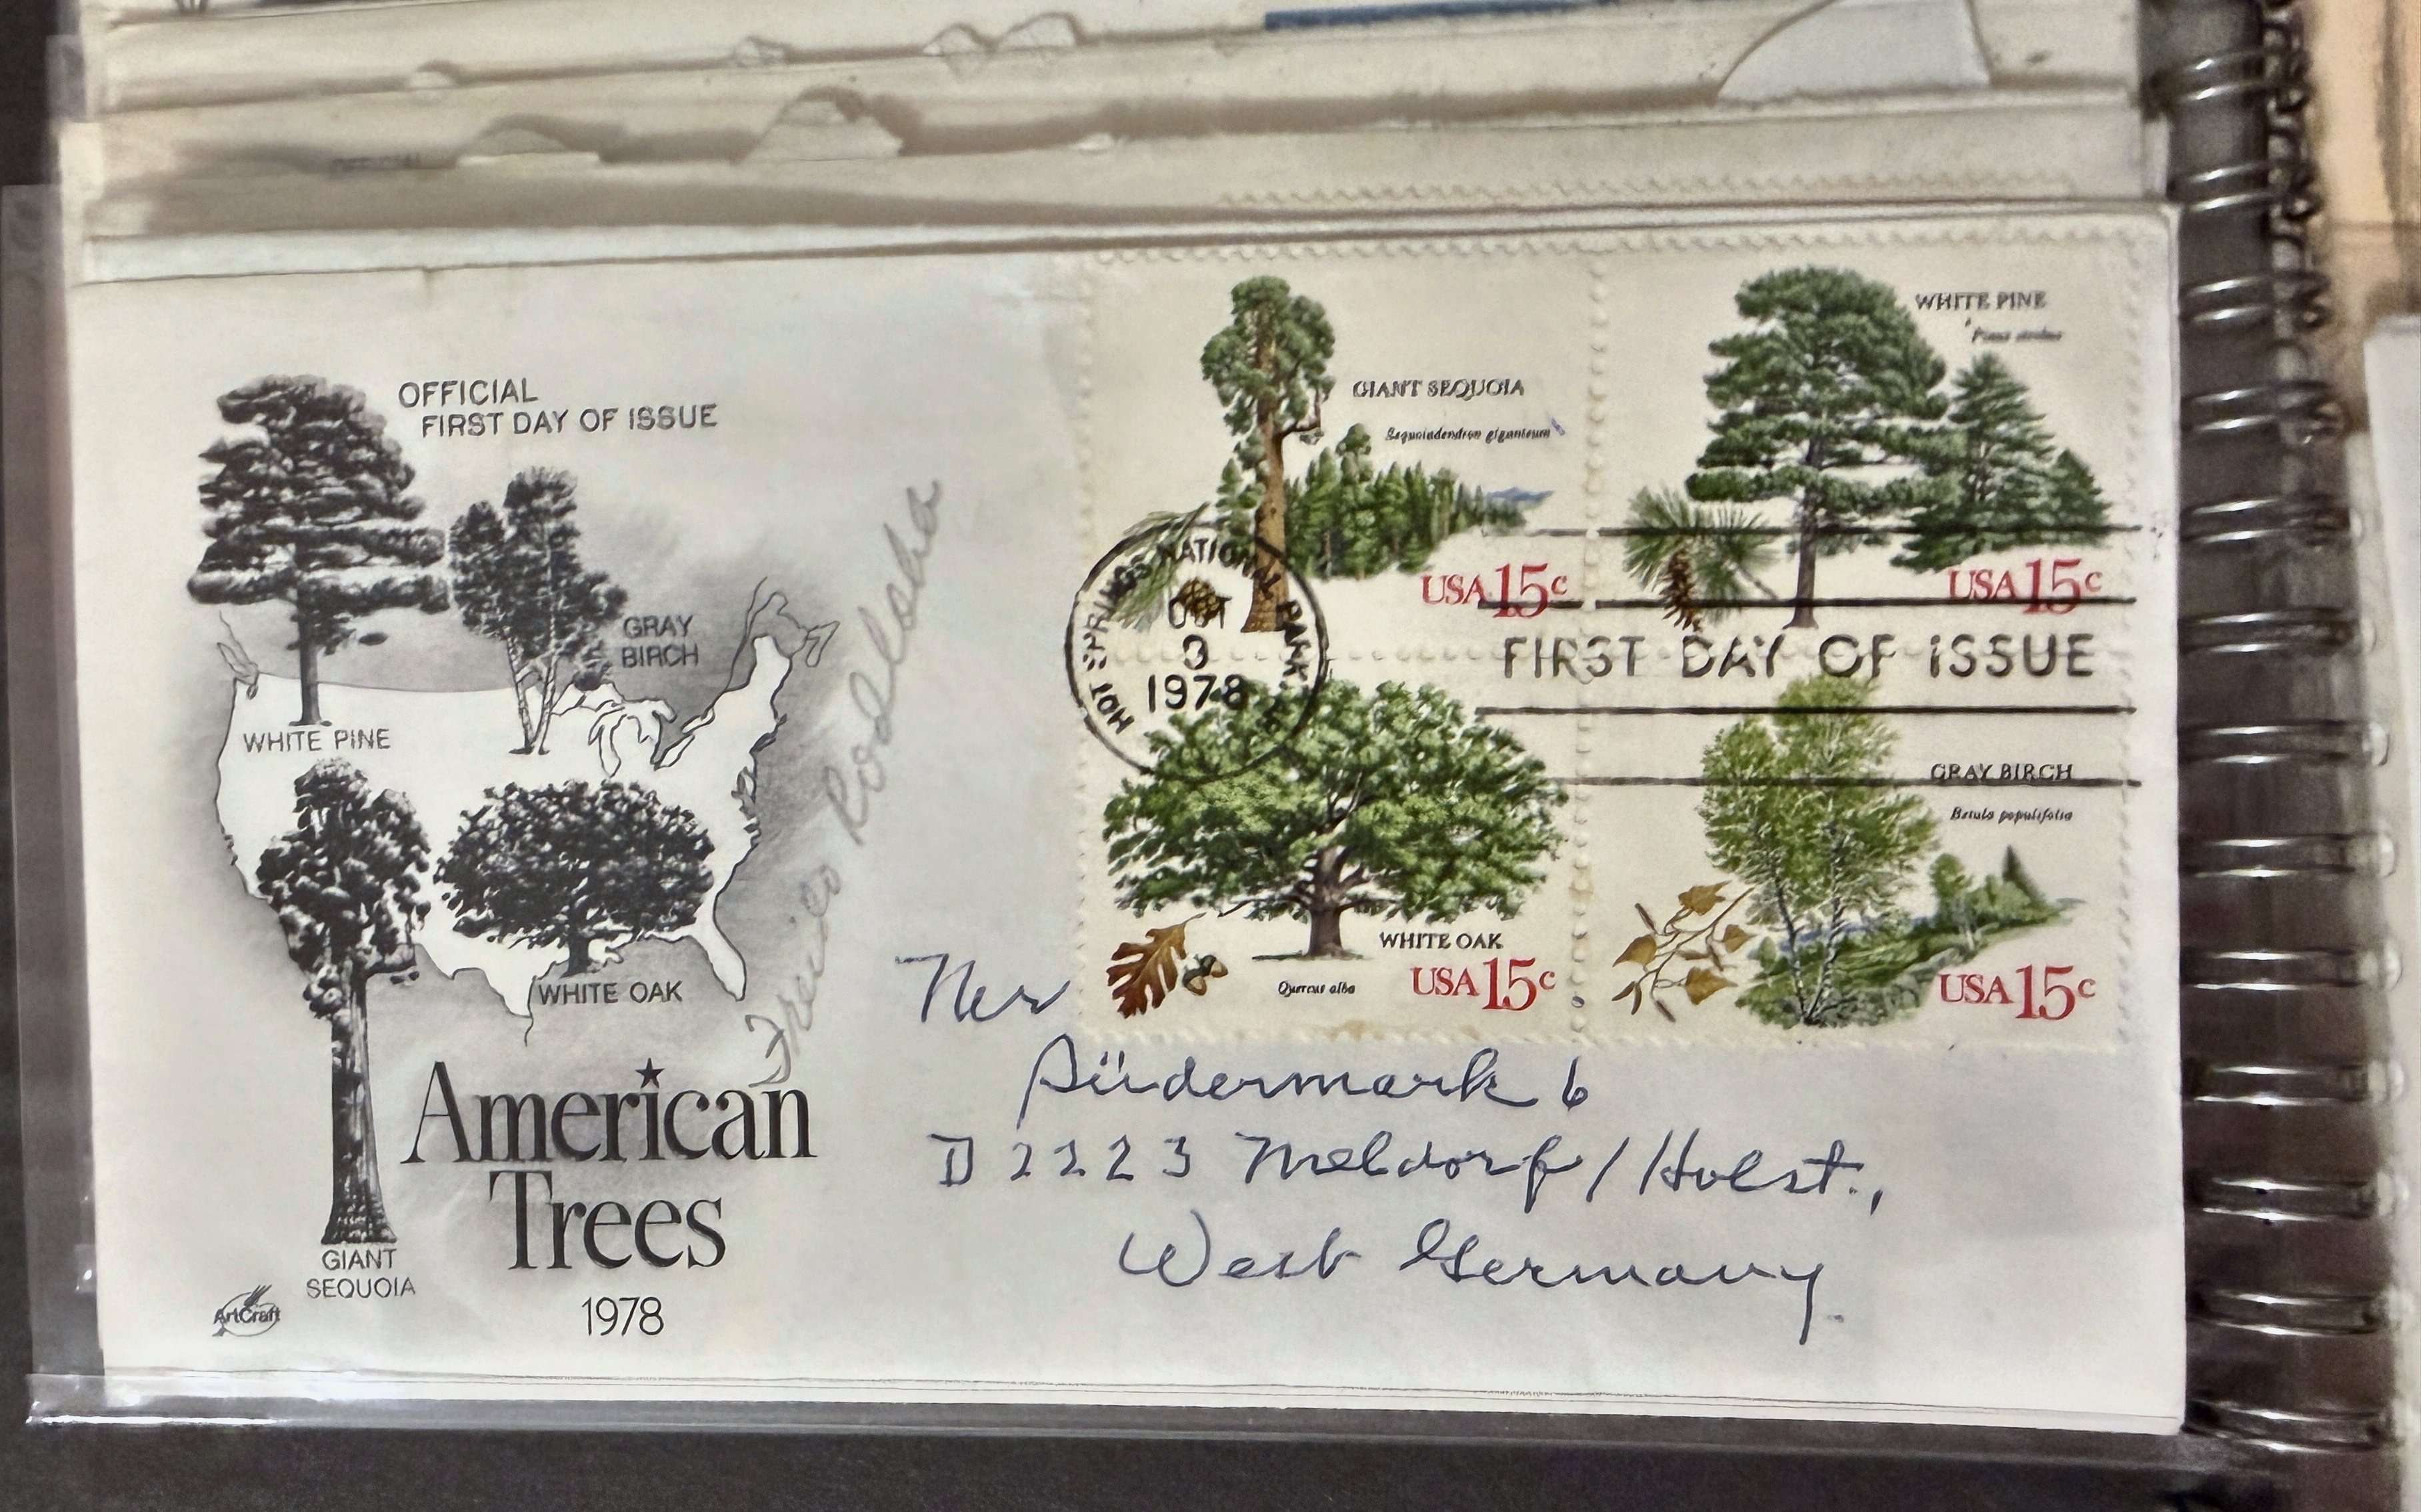 OFFICIAL
FIRST DAY OF ISSUE
GRAY
BIRCH
WHITE PINE
WHITE OAK
GIANT
SEQUOIA
American
Trees
1978
ArtCraft
GIANT SEQUOIA
Sequoiadendron giganteum
USA 15c
WHITE PINE
Pinus strobus
USA 15c
HOT SPRINGS NATIONAL PARK
OCT
9
1978
FIRST DAY OF ISSUE
WHITE OAK
Quercus alba
USA 15c
GRAY BIRCH
Betula populifolia
USA 15c
Südermark 6
D 2223 Meldorf / Holst.,
West Germany